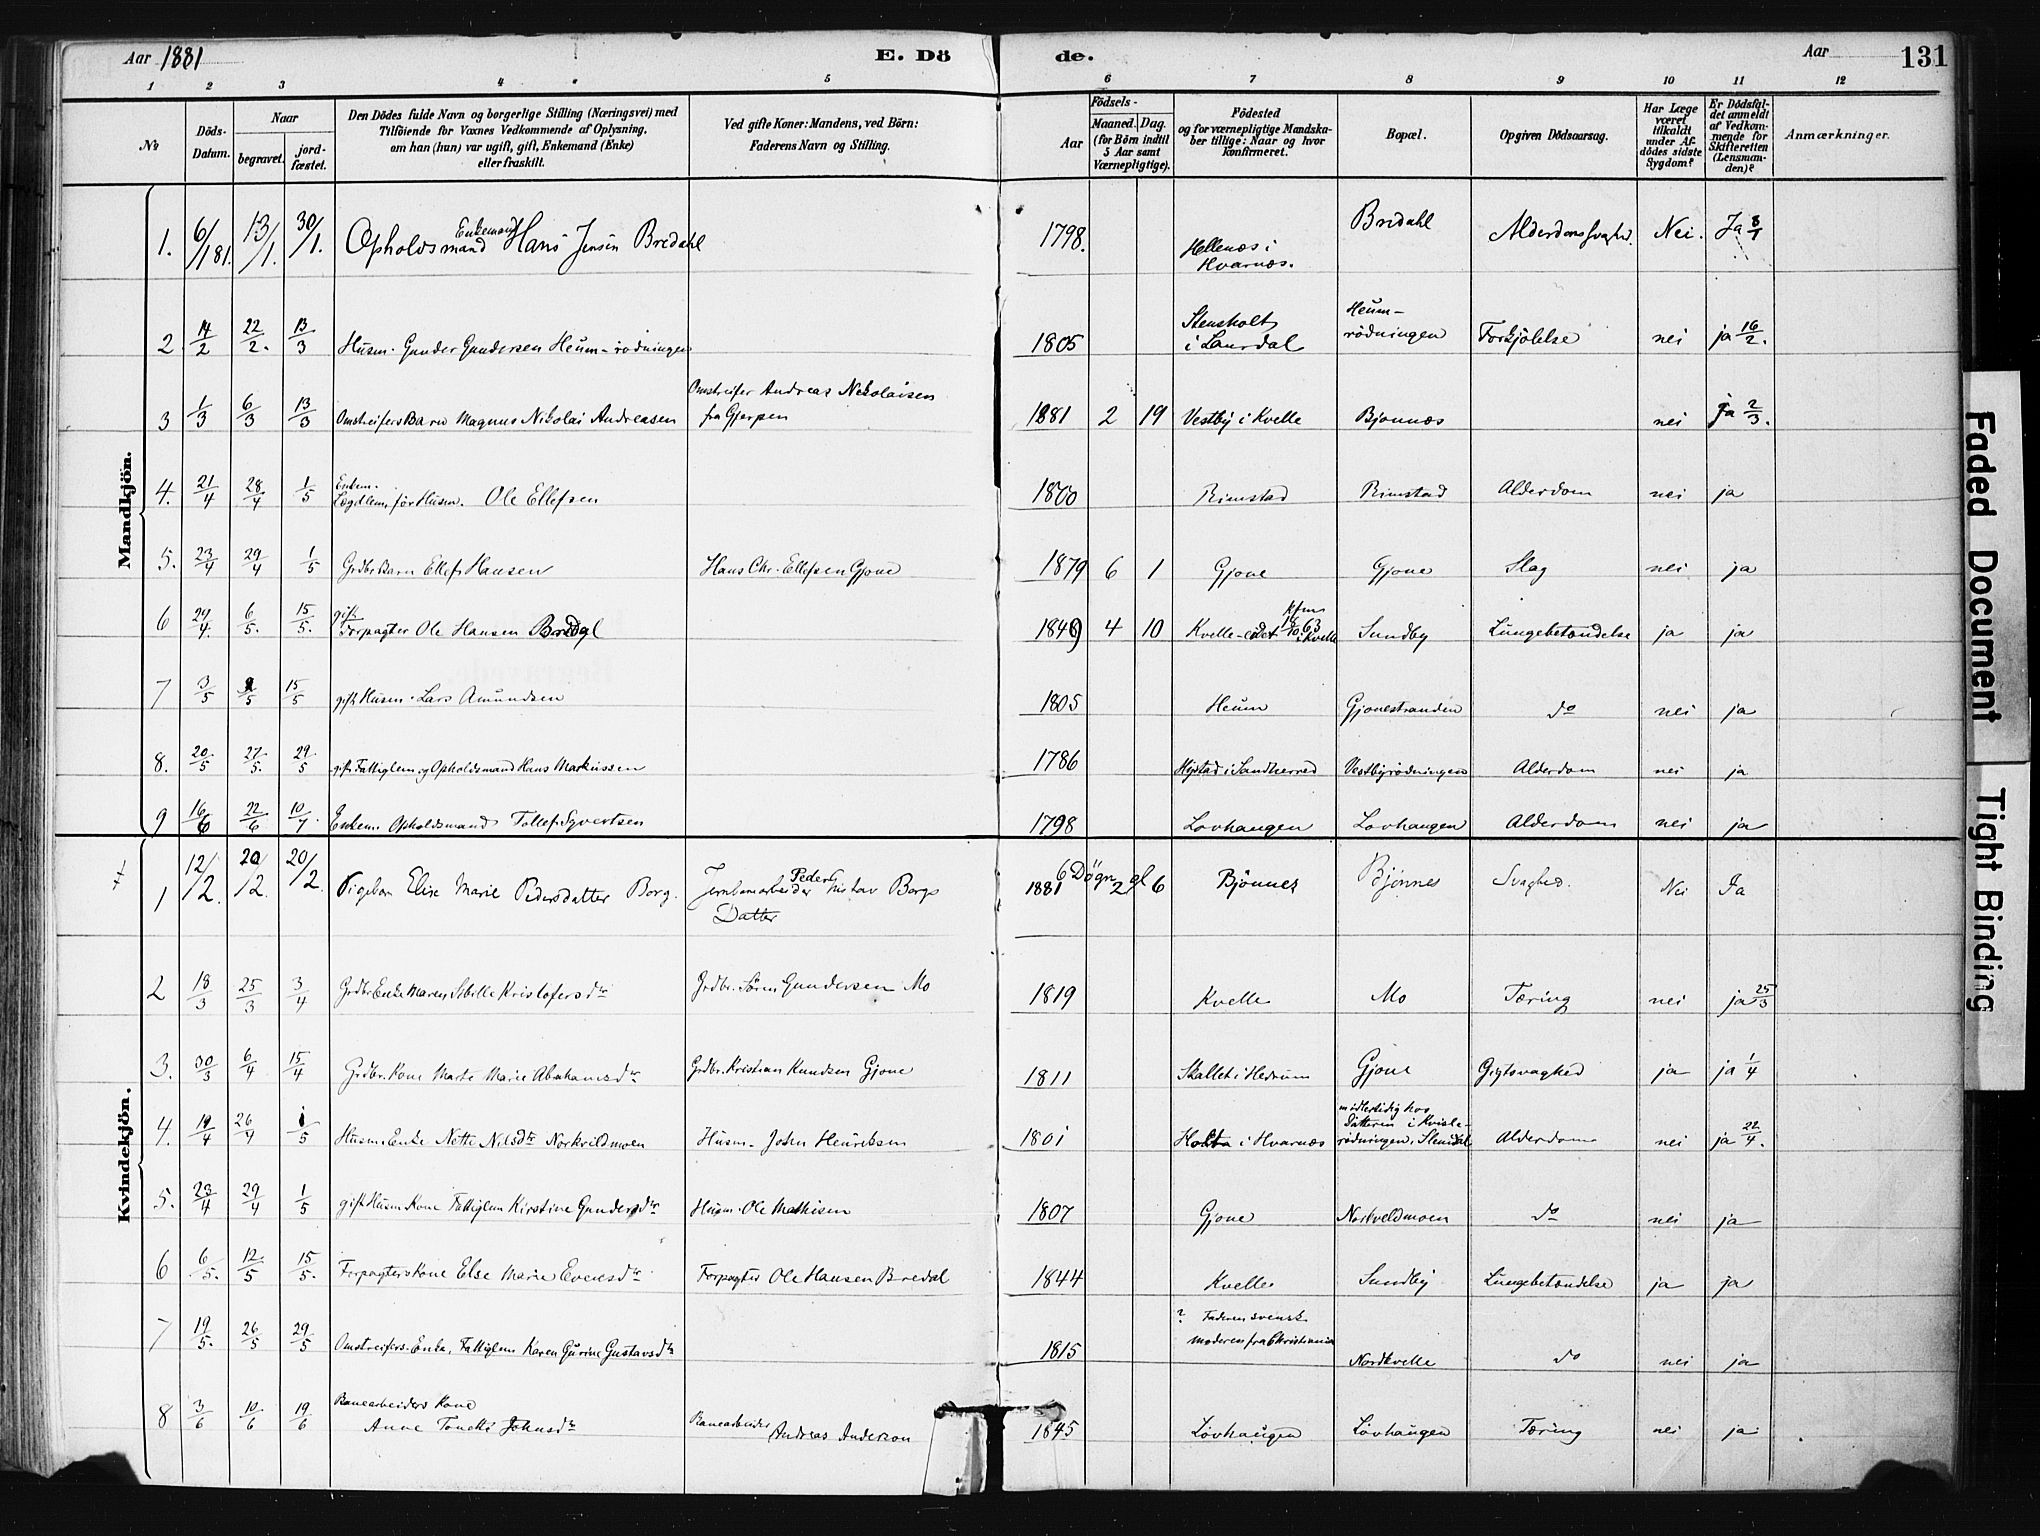 Aar 1881 E. Dö de. Aar 131
1 2 3 4 5 6 7 8 9 10 11 12
No
Döds-Datum.
Naar
begravet.
jordfæstet.
Den Dödes fulde Navn og borgerlige Stilling (Næringsvei) med
Tilföiende for Voxnes Vedkommende af Oplysning,
om han (hun) var ugift, gift, Enkemand (Enke)
eller fraskilt.
Ved gifte Koner: Mandens, ved Börn:
Faderens Navn og Stilling.
Födsels-
Aar
Maaned. Dag.
(for Börn indtil
5 Aar samt
Værnepligtige).
Födested
og for værnepligtige Mandskaber
tillige: Naar og hvor
konfirmeret.
Bopæl.
Opgiven Dödsaarsag.
Har Læge
været
tilkaldt
under Afdödes
sidste
Sygdom?
Er Dödsfaldet
anmeldt
af Vedkommende
for
Skifteretten
(Lensmanden)?
Anmærkninger.
Mandkjön.
1. 6/1 81. 13/1. 30/1. Opholdsmand Enkemand Hans Jensen Bredahl 1798. Hellenæs i Hvarnæs. Bredahl Alderdomssvaghed. Nei. Ja 8/1
2 14/2 22/2. 13/3 Husm. Gunder Gundersen Heum-rödningen 1805 Stensholt i Laurdal Heum-rödningen Forkjölelse nei ja 16/2.
3 1/3 6/3 13/3 Omstreifers Barn Magnus Nikolai Andreasen Omstreifer Andreas Nikolaisen fra Gjerpen 1881 2 19 Vestby i Kvelle Bjönnæs nei ja 2/3.
4. 21/4 28/4 1/5 Enkem. Lægdlem, för Husm. Ole Ellefsen 1800 Rimstad Rimstad Alderdom nei ja
5. 23/4 29/4 1/5 Grdbr. Barn Ellef Hansen Hans Chr. Ellefsen Gjone 1879 6 1 Gjone Gjone Slag nei ja
6 29/4. 6/5. 15/5. gift Forpagter Ole Hansen Bredal 1849 4 10 Kvelle-eidet Kfm 18/10 63 i Kvelle Sundby Lungebetændelse ja ja
7 3/5 9/5 15/5 gift Husm. Lars Amundsen 1805 Heum Gjonestranden do nei ja
8. 20/5 27/5. 29/5 gift Fattiglem og Opholdsmand Hans Markussen 1786 Hystad i Sandherred Vestbyrödningen Alderdom nei ja
9 16/6 22/6 10/7. Enkem. Opholdsmand Tollef Syvertsen 1798 Lovhaugen Lovhaugen Alderdom nei ja
Kvindekjön.
1 12/2. 20/2. 20/2. Pigebarn Elise Marie Pedersdatter Borg. Jernbanearbeider Peder Gustav Borgs Datter 1881 6 Dögn gl 2 6 Bjönnes Bjönnes Svaghed. Nei Ja
2 18/3 25/3 3/4 Grdbr. Enke Maren Sibille Kristofersdtr Grdbr. Sören Gundersen Mo 1819 Kvelle Mo Tæring nei ja 25/3
3. 30/3 6/4 15/4 Grdbr. Kone Marte Marie Abrahamsdtr Grdbr. Kristian Knudsen Gjone 1811 Skallet i Hedrum Gjone Gigtsvaghed ja ja 1/4
4. 19/4 26/4 1/5 Husm. Enke Nette Nilsdtr Norkvildmoen Husm. John Henriksen 1801 Holta i Hvarnæs midlertidig hos Datteren i Kvislerödningen, Slemdal Alderdom nei ja 22/4.
5. 23/4 29/4 1/5 gift Husm. Kone Fattiglem Kirstine Gundersdtr Husm. Ole Mathisen 1807 Gjone Norkveldmoen do nei ja
6 6/5. 12/5 15/5. Forpagters Kone Else Marie Evensdtr Forpagter Ole Hansen Bredal 1844 Kvelle Sundby Lungebetændelse ja ja
7 19/5. 26/5 29/5 Omstreifers Enke, Fattiglem Karen Gurine Gustavsdtr 1815 ? Faderen svensk moderen fra Christiania Nordkvelle do nei ja
8 3/6 10/6 19/6 Banearbeiders Kone Anne Tonette Johnsdtr Banearbeider Andreas Anderson 1845 Lövhaugen Lövhaugen Tæring nei ja
Faded Document
Tight Binding